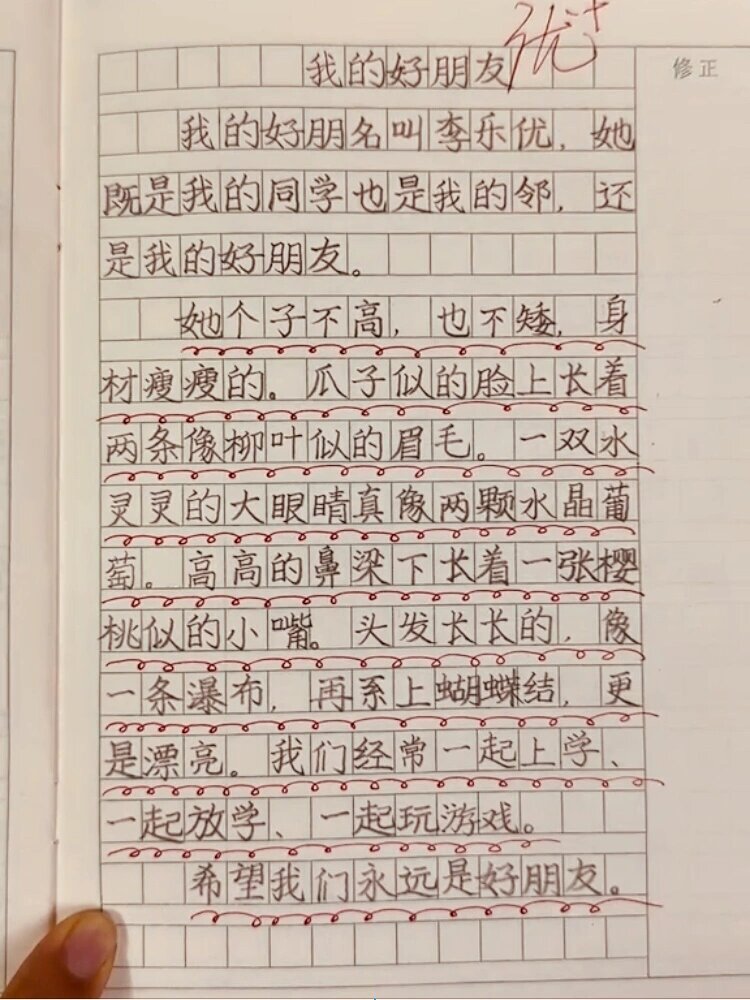 优+
我的好朋友
修正
我的好朋名叫李乐优，她
既是我的同学也是我的邻，还
是我的好朋友。
她个子不高，也不矮，身
材瘦瘦的。瓜子似的脸上长着
两条像柳叶似的眉毛。一双水
灵灵的大眼睛真像两颗水晶葡
萄。高高的鼻梁下长着一张樱
桃似的小嘴。头发长长的，像
一条瀑布，再系上蝴蝶结，更
是漂亮。我们经常一起上学、
一起放学、一起玩游戏。
希望我们永远是好朋友。